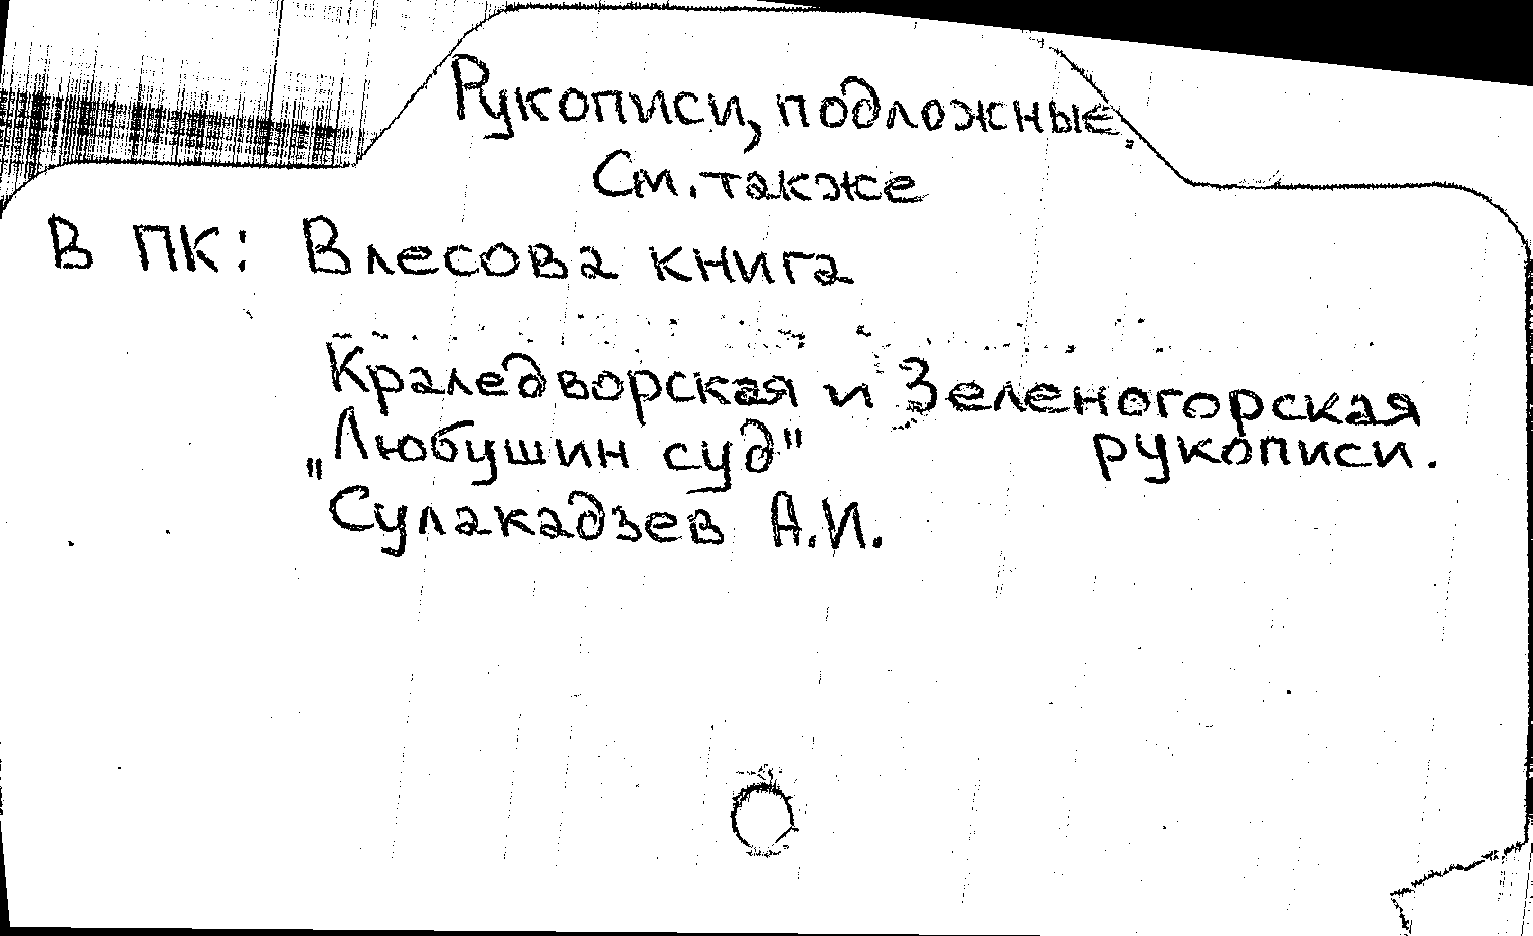 Рукописи, подложные.
См. также
В ПК: Влесова книга
Краледворская и Зеленогорская
рукописи.
„Любушин суд"
Сулакадзев А.И.